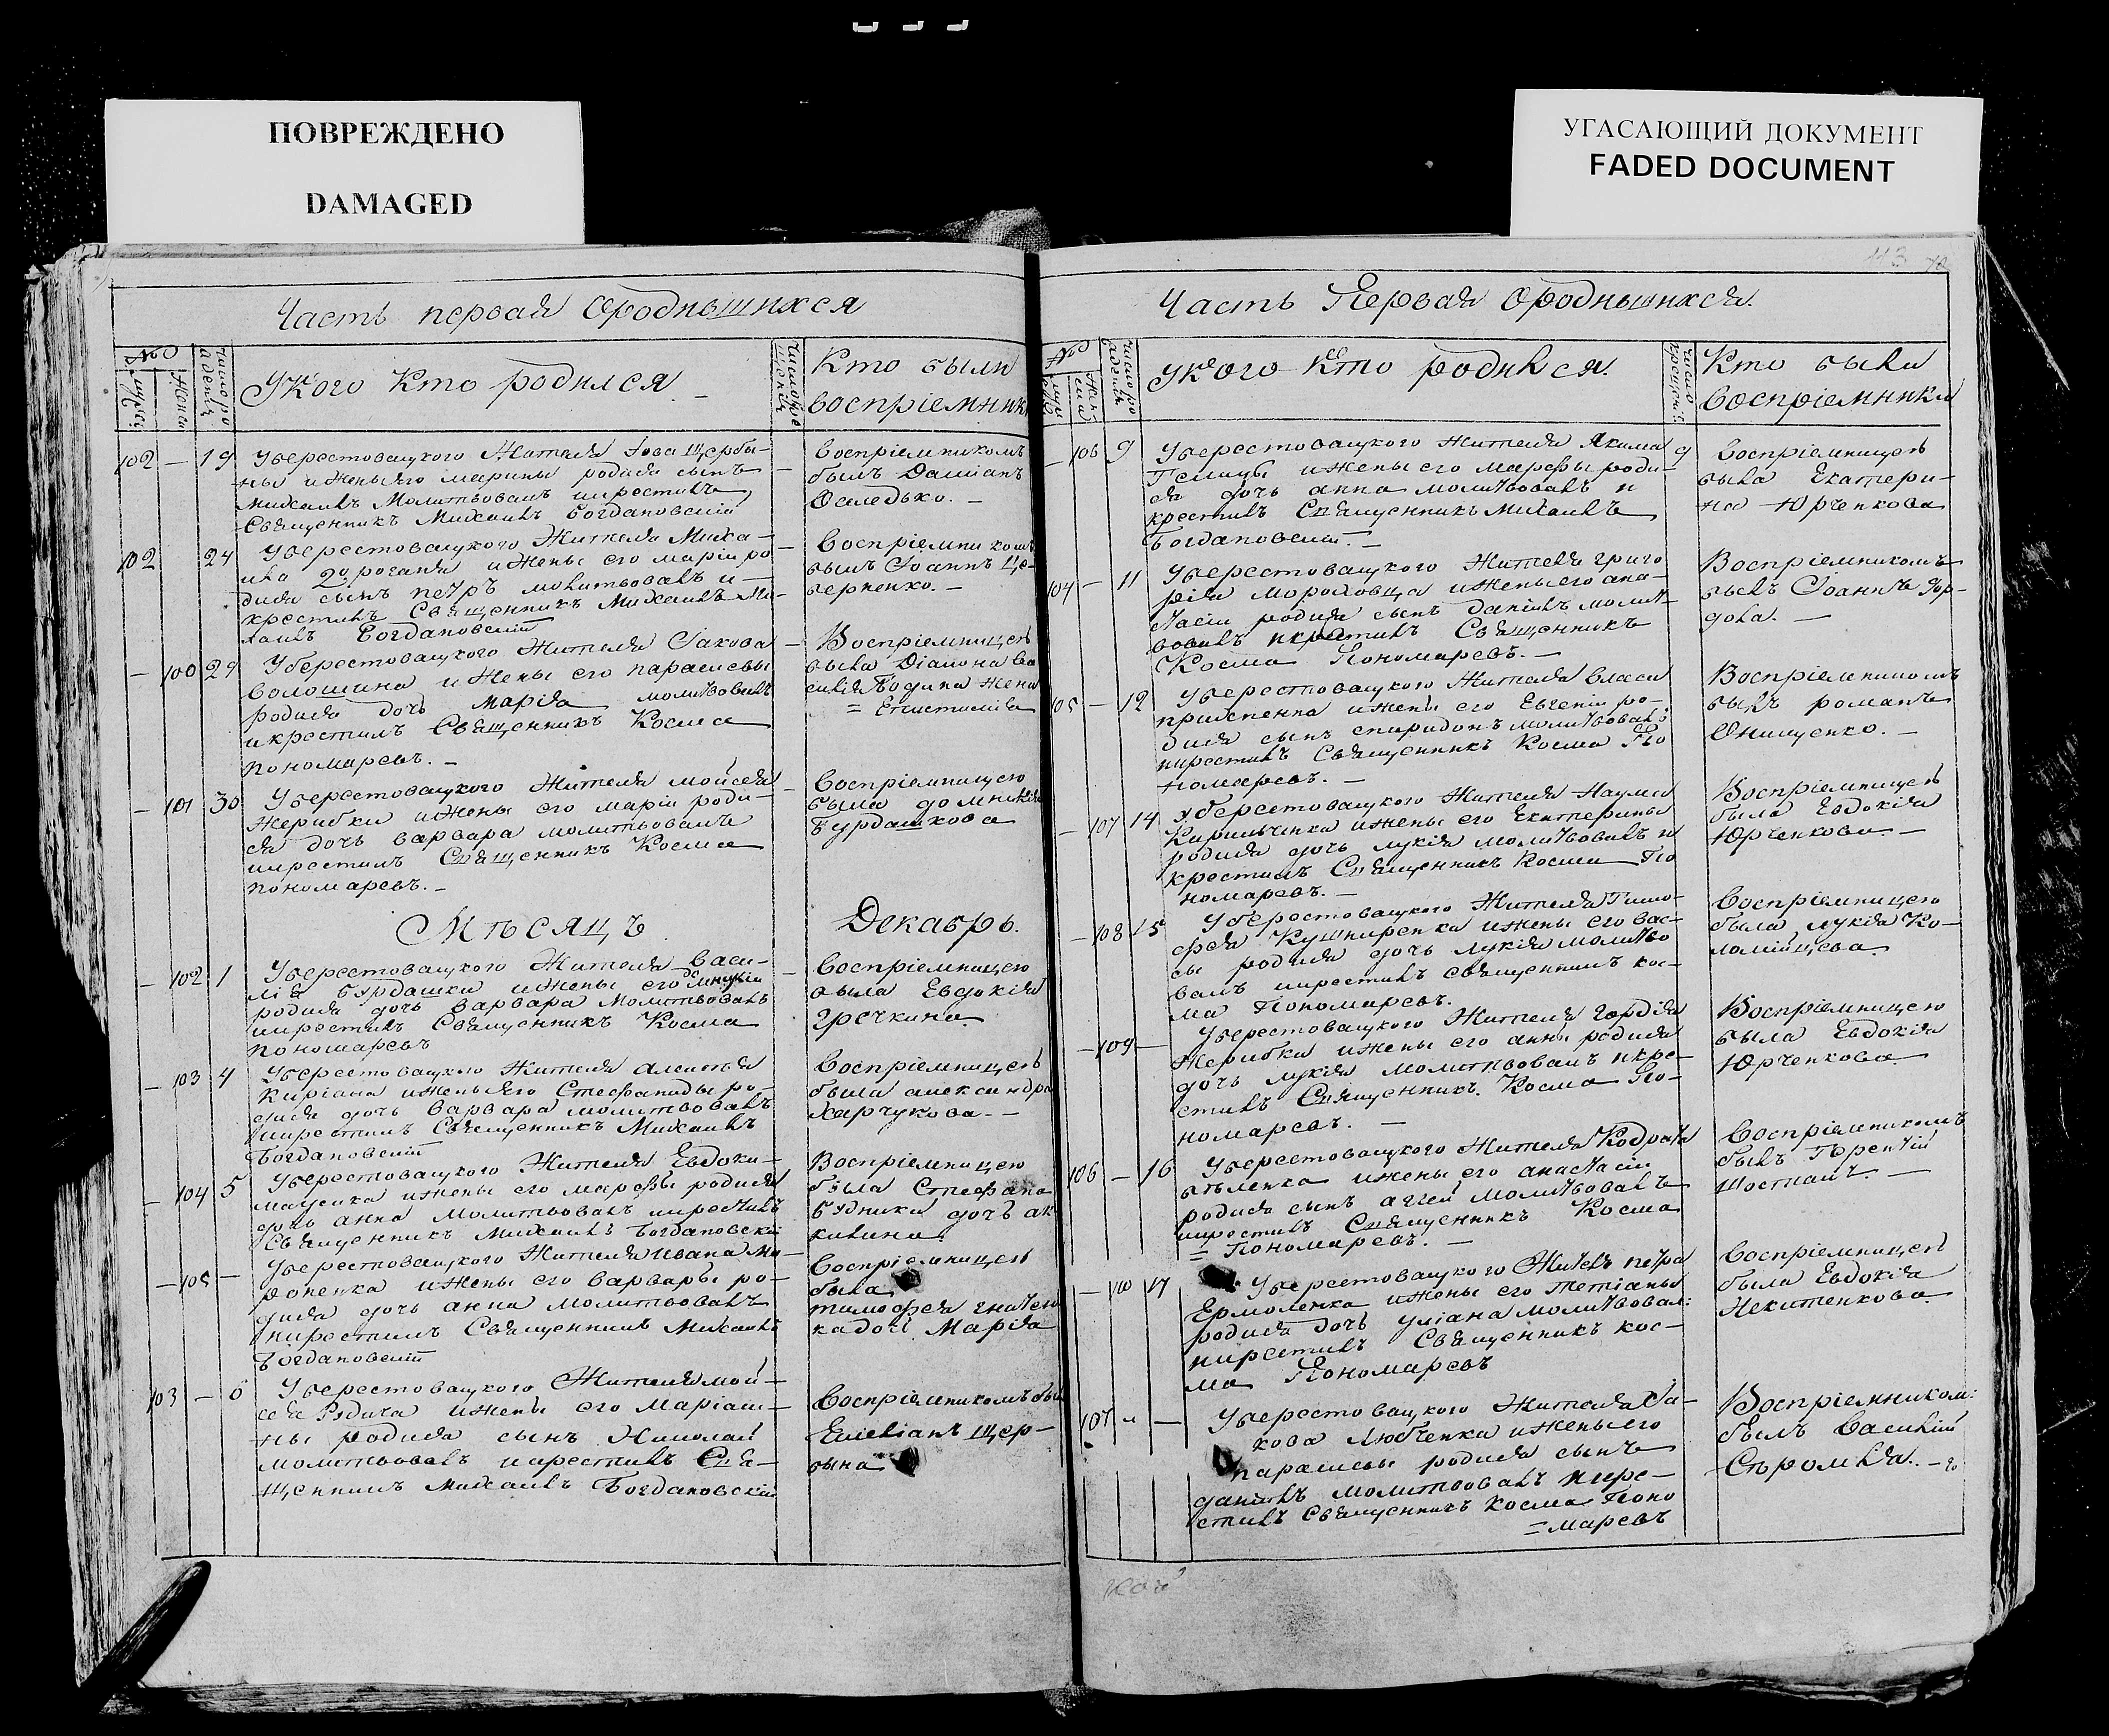 ПОВРЕЖДЕНО
DAMAGED
УГАСАЮЩИЙ ДОКУМЕНТ
FADED DOCUMENT
113
Часть первая Ородившихся
№
Укого Кто родился.
Кто были
воспріемники
102 — 19 Уберестовацкого Жителя Іова Щерби-
ны иЖены его марины родился сынъ
михаилъ Молитвовалъ икрестилъ
Священникъ Михаилъ Богдановскій
Воспріемникомъ
былъ Даміанъ
Оселедько. —
102 24 Уберестовацкого Жителя Миха-
ила иЖены его маріи ро-
дился сынъ петръ молитвовалъ и —
крестилъ Священникъ Михаилъ Ми-
хаилъ Богдановскій
Воспріемникомъ
былъ Іоаннъ Ще-
— 100 29 Уберестовацкого Жителя Іакова
волошина иЖены его парасковіи
родися дочь марія молитвовалъ
икрестилъ Священникъ Косма
пономаревъ. —
Воспріемницею
была
жена
— 101 30 Уберестовацкого Жителя мойсея
Жерибки иЖены его маріи роди-
ся дочь варвара молитвовалъ
икрестилъ Священникъ Косма
пономаревъ. —
Воспріемницею
была домникія
Бурдашкова
Мѣсяцъ Декабрь.
— 102 1 Уберестовацкого Жителя Васи-
лія Бурдашки иЖены его
родися дочь варвара молитвовалъ
икрестилъ Священникъ Косма
пономаревъ
Воспріемницею
была Евдокія
Гречкина.
— 103 4 Уберестовацкого Жителя алексѣя
Киріана иЖены его Стефаниды ро-
дися дочь варвара молитвовалъ
икрестилъ Священникъ Михаилъ
Богдановскій
Воспріемницею
была александра
Харчукова. —
— 104 5 Уберестовацкого Жителя Евдоки-
мащенка иЖены его марѳы родися
дочь анна Молитвовалъ икрестилъ
Священникъ Михаилъ Богдановскій
Воспріемницею
была Стефана
Будники дочь ак-
килина.
— 105 — Уберестовацкого Жителя Ивана Ми-
роненка иЖены его варвары ро-
дися дочь анна молитвовалъ
икрестилъ Священникъ Михаилъ
Богдановскій
Воспріемницею
была
тимофея игнатен-
ка дочь Марія
103 — 6 Уберестовацкого Жителя мой-
сея иЖены его Маріам-
ны родися сынъ Николай
молитвовалъ икрестилъ Свя-
щенникъ михаилъ Богдановскій
Воспріемникомъ былъ
Емеліанъ Щер-
бина
Часть Первая Ородившихся.
№
Укого Кто родился.
Кто были
Воспріемники
— 106 9 Уберестовацкого Жителя Якима
иЖены его марѳы роди-
ся дочь анна молитвовалъ и
крестилъ Священникъ Михаилъ
Богдановскій. —
9
Воспріемницею
была Екатери-
на Юрченкова
104 — 11 Уберестовацкого Жителя григо-
рія Мороховца иЖены его ана-
стасіи родися сынъ даніилъ молит-
вовалъ икрестилъ Священникъ
Косма Пономаревъ. —
Воспріемникомъ
былъ Іоаннъ
105 — 12 Уберестовацкого Жителя власа
иЖены его Евгеніи ро-
дися сынъ спиридонъ молитвовалъ
икрестилъ Священникъ Косма По-
номаревъ. —
Воспріемникомъ
былъ романъ
Онищенко. —
— 107 14 Уберестовацкого Жителя Наума
Кирильченка иЖены его Екатерины
родися дочь лукія молитвовалъ и
крестилъ Священникъ Косма По-
номаревъ. —
Воспріемницею
была Евдокія
Юрченкова —
— 108 15 Уберестовацкого Жителя Тимо-
фея Кушниренка иЖены его Вас-
сы родися дочь лукія молитво-
валъ икрестилъ священникъ кос-
ма Пономаревъ.
Воспріемницею
была лукія Ко-
ломійцева.
— 109 — Уберестовацкого Жителя гордія
Жерибки иЖены его анны родися
дочь лукія молитвовалъ икре-
стилъ Священникъ Косма По-
номаревъ. —
Воспріемницею
была Евдокія
Юрченкова
106 — 16 Уберестовацкого Жителя Кодрата
бѣленка иЖены его анастасіи
родися сынъ аггей молитвовалъ
икрестилъ Священникъ Косма
= Пономаревъ. —
Воспріемникомъ
былъ Терентій
Шостакъ. —
— 110 17 Уберестовацкого Жителя петра
Ермоленка иЖены его Татіаны
родися дочь уліана молитвовалъ
икрестилъ Священникъ кос-
ма Пономаревъ
Воспріемницею
была Евдокія
Никитенкова.
107 — — Уберестовацкого Жителя Іа-
кова Любченка иЖены его
параскевы родися сынъ
даніилъ молитвовалъ икре-
стилъ Священникъ Косма Поно-
= маревъ
Воспріемником:
былъ Василій